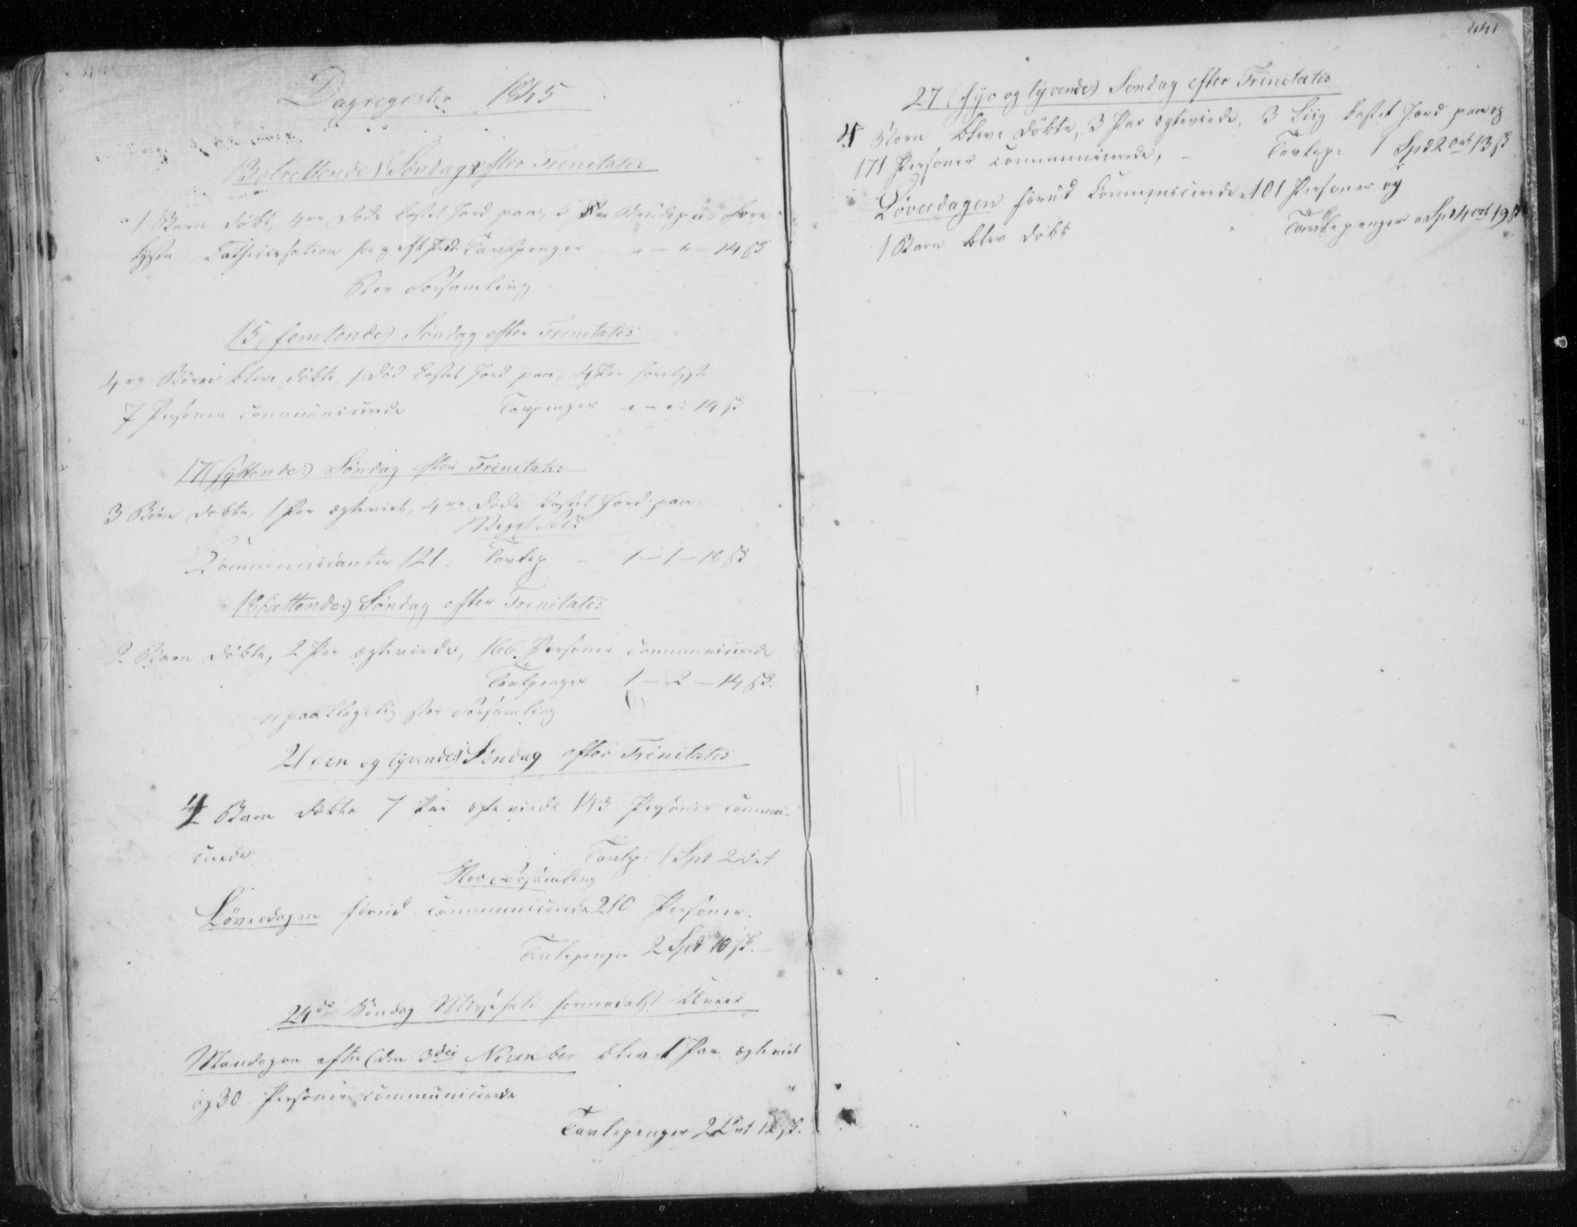 Dagregister 1845
13 (trettende) Søndag efter Trinitatis
1 Barn döbt, døde kastet Jord paa, Brudepar
Tavlpenger 14 ß
Stor Forsamling
15 (femtende) Søndag efter Trinitatis
4re Börn bleve döbte, 1 Död kastet Jord paa, 4 Par
7 Personer communicerede 14 ß
17 (syttende) Søndag efter Trinitatis
3 Börn döbte, 1 Par ægteviet, 4re Döde kastet Jord paa.
Communicanter 121. Tavlep 1 - 1 - 16 ß
18 (attende) Søndag efter Trinitatis
2 Barn döbte, 2 Par ægteviede, 166 Personer communicerede
Tavlpenger 1 - 2 - 14 ß.
stor Forsamling
21 (en og tyvende) Søndag efter Trinitatis
4 Barn döbte 7 Par ægteviede 143 Personer communi-
cerede Tavlp: 1 Spd 2 Ort
Stor Forsamling
Løverdagen forud communicerede 210 Personer.
Tavlepenger 2 Spd 10 ß.
24de Søndag Messefald formedelst
Mandagen efter (den 3die November blev 1 Par ægteviet
og 30 Personer communicerede
Tavlepenger 2 Ort 12 ß.
441
27 (syv og tyvende) Søndag efter Trinitatis
4 Børn bleve döbte, 3 Par ægteviede, 3 Liig kastet Jord paa og
171 Personer communicerede, - Tavlep: 1 Spd 2 Ort 13 ß
Løverdagen forud communicerede 101 Personer og
1 Barn blev döbt Tavlepenger Spd 4 Ort 19 ß